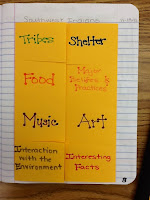 Southwest Indians
Tribes
Shelter
Food
Major
Beliefs &
Practices
Music
Art
Interaction
with the
Environment
Interesting
Facts